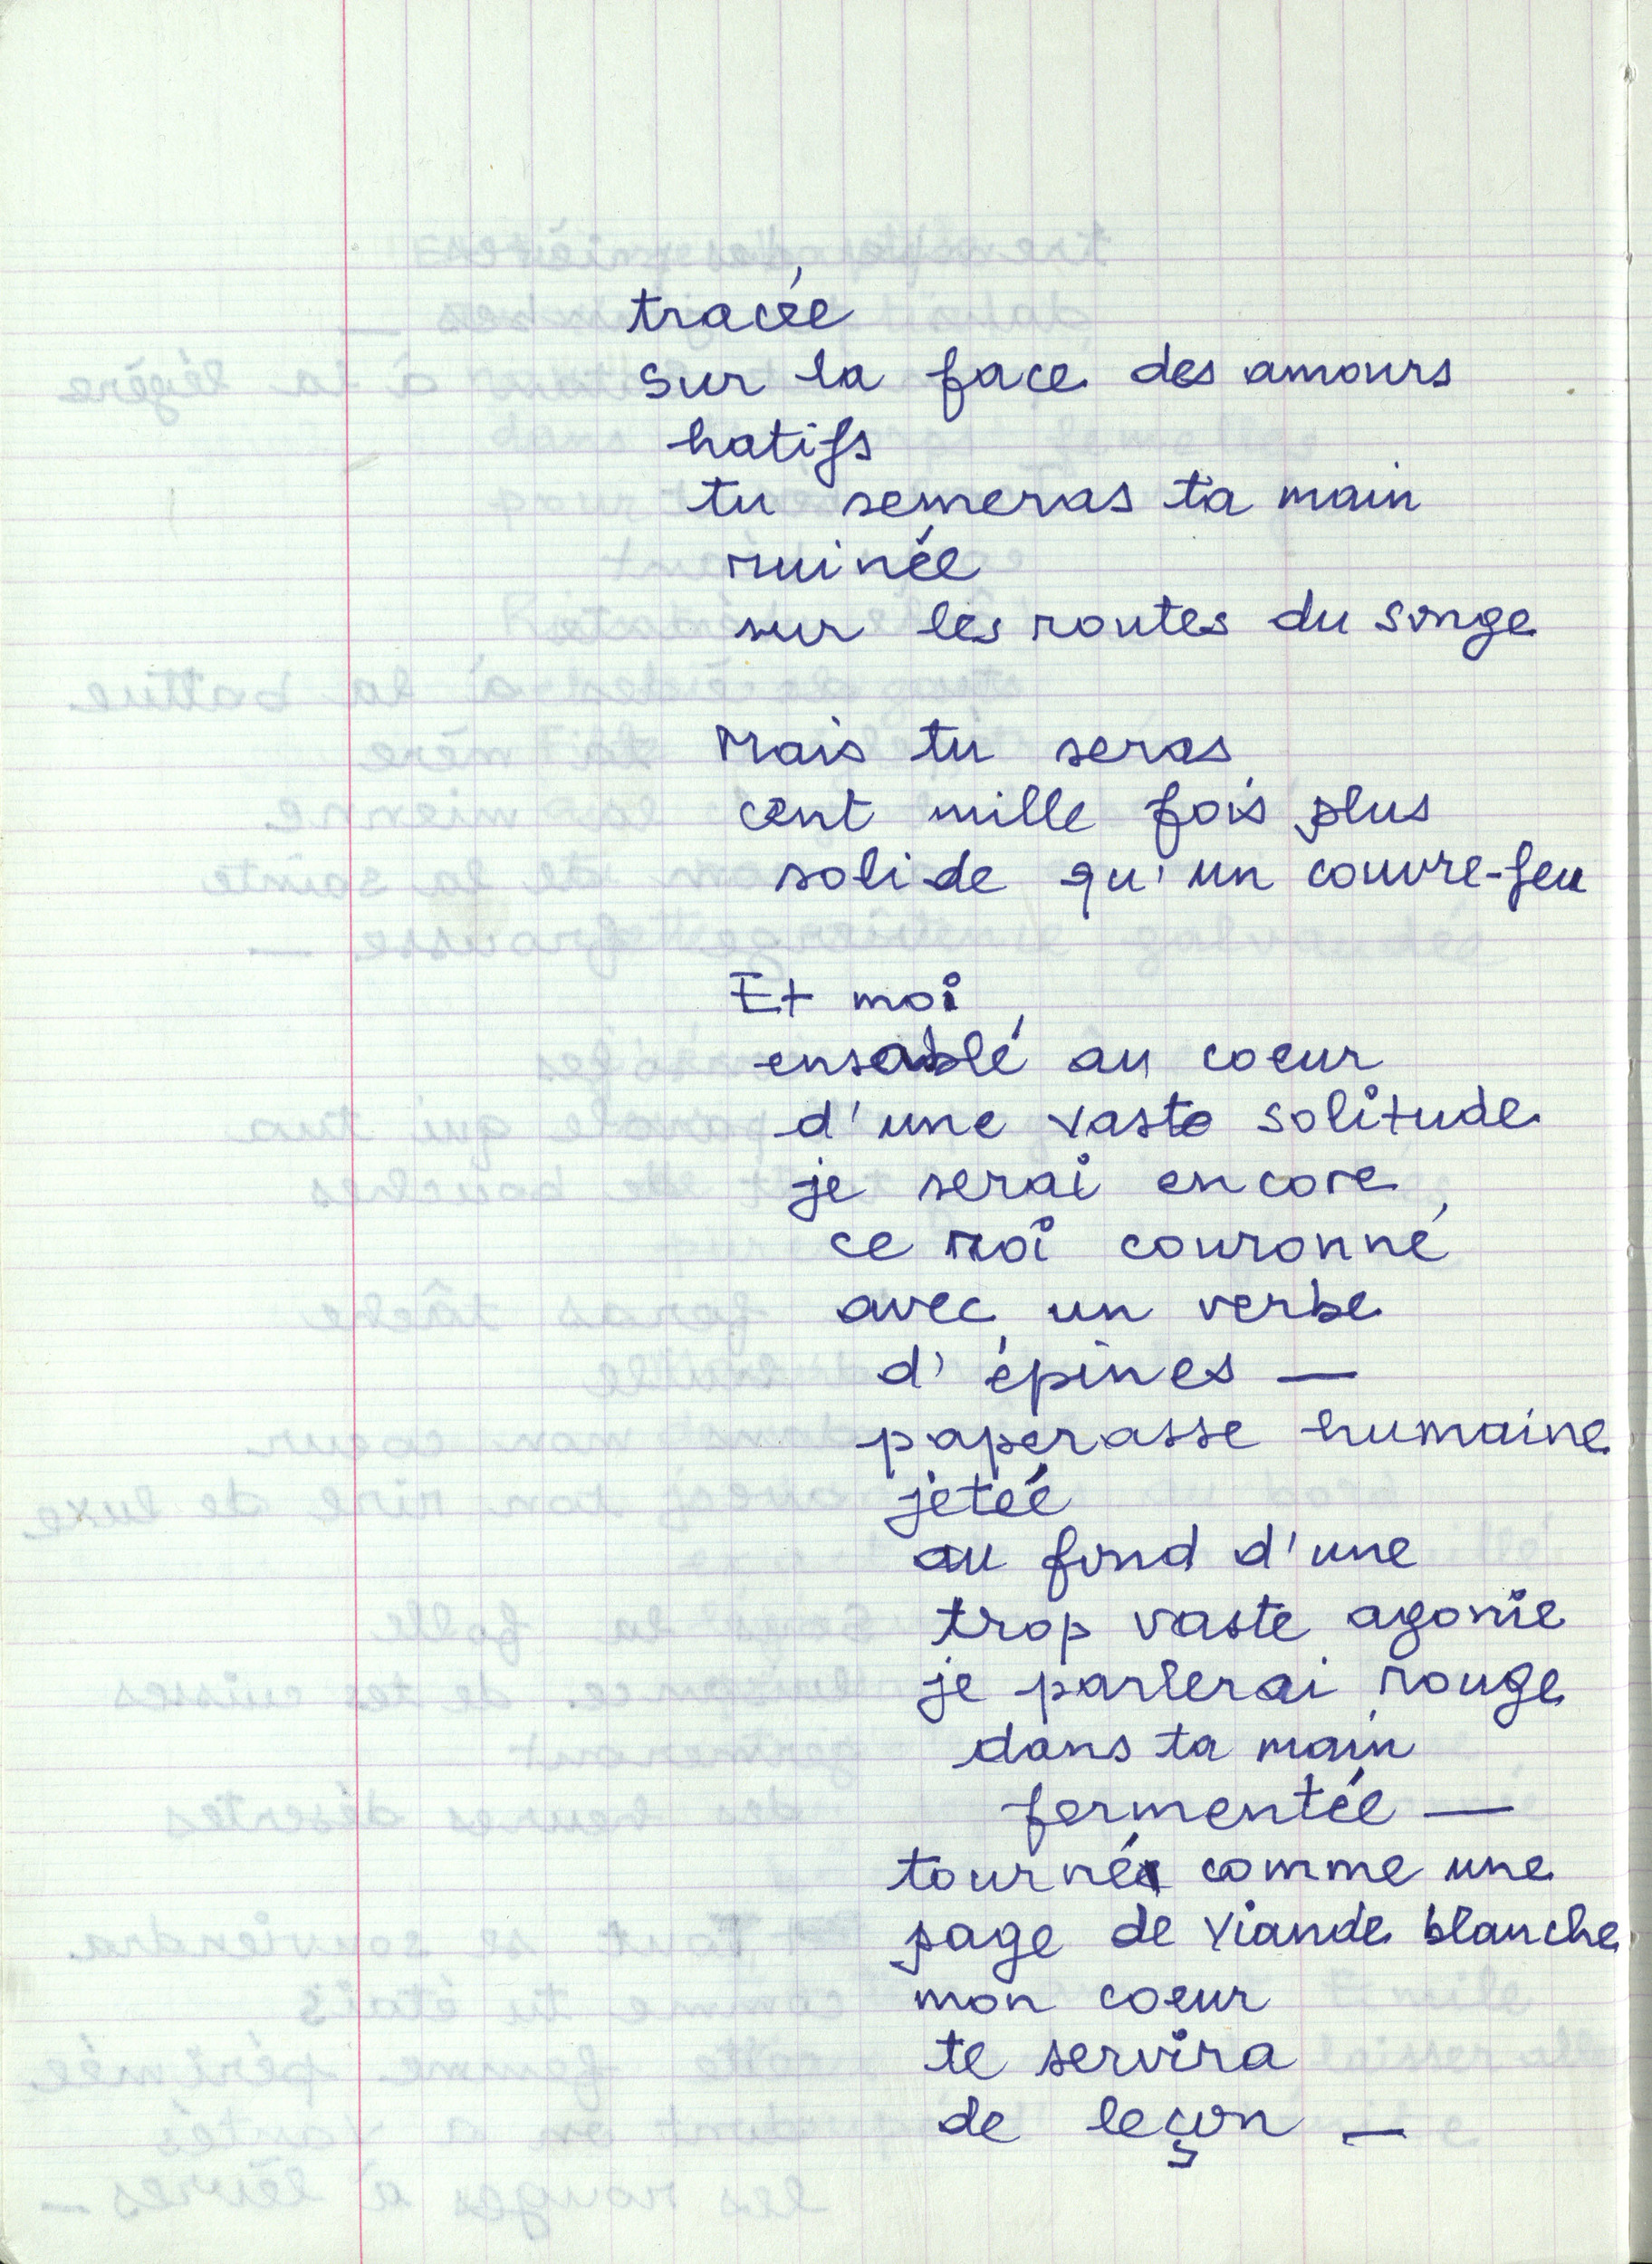 tracée
sur la face des amours
hatifs
tu semeras ta main
ruinée
sur les routes du songe
Mais tu seras
cent mille fois plus
solide qu'un couvre-feu
Et moi
ensablé au coeur
d'une vaste solitude
je serai encore
ce roi couronné
avec un verbe
d'épines —
paperasse humaine
jetée
au fond d'une
trop vaste agonie
je parlerai rouge
dans ta main
fermentée —
tourné comme une
page de viande blanche
mon coeur
te servira
de leçon —